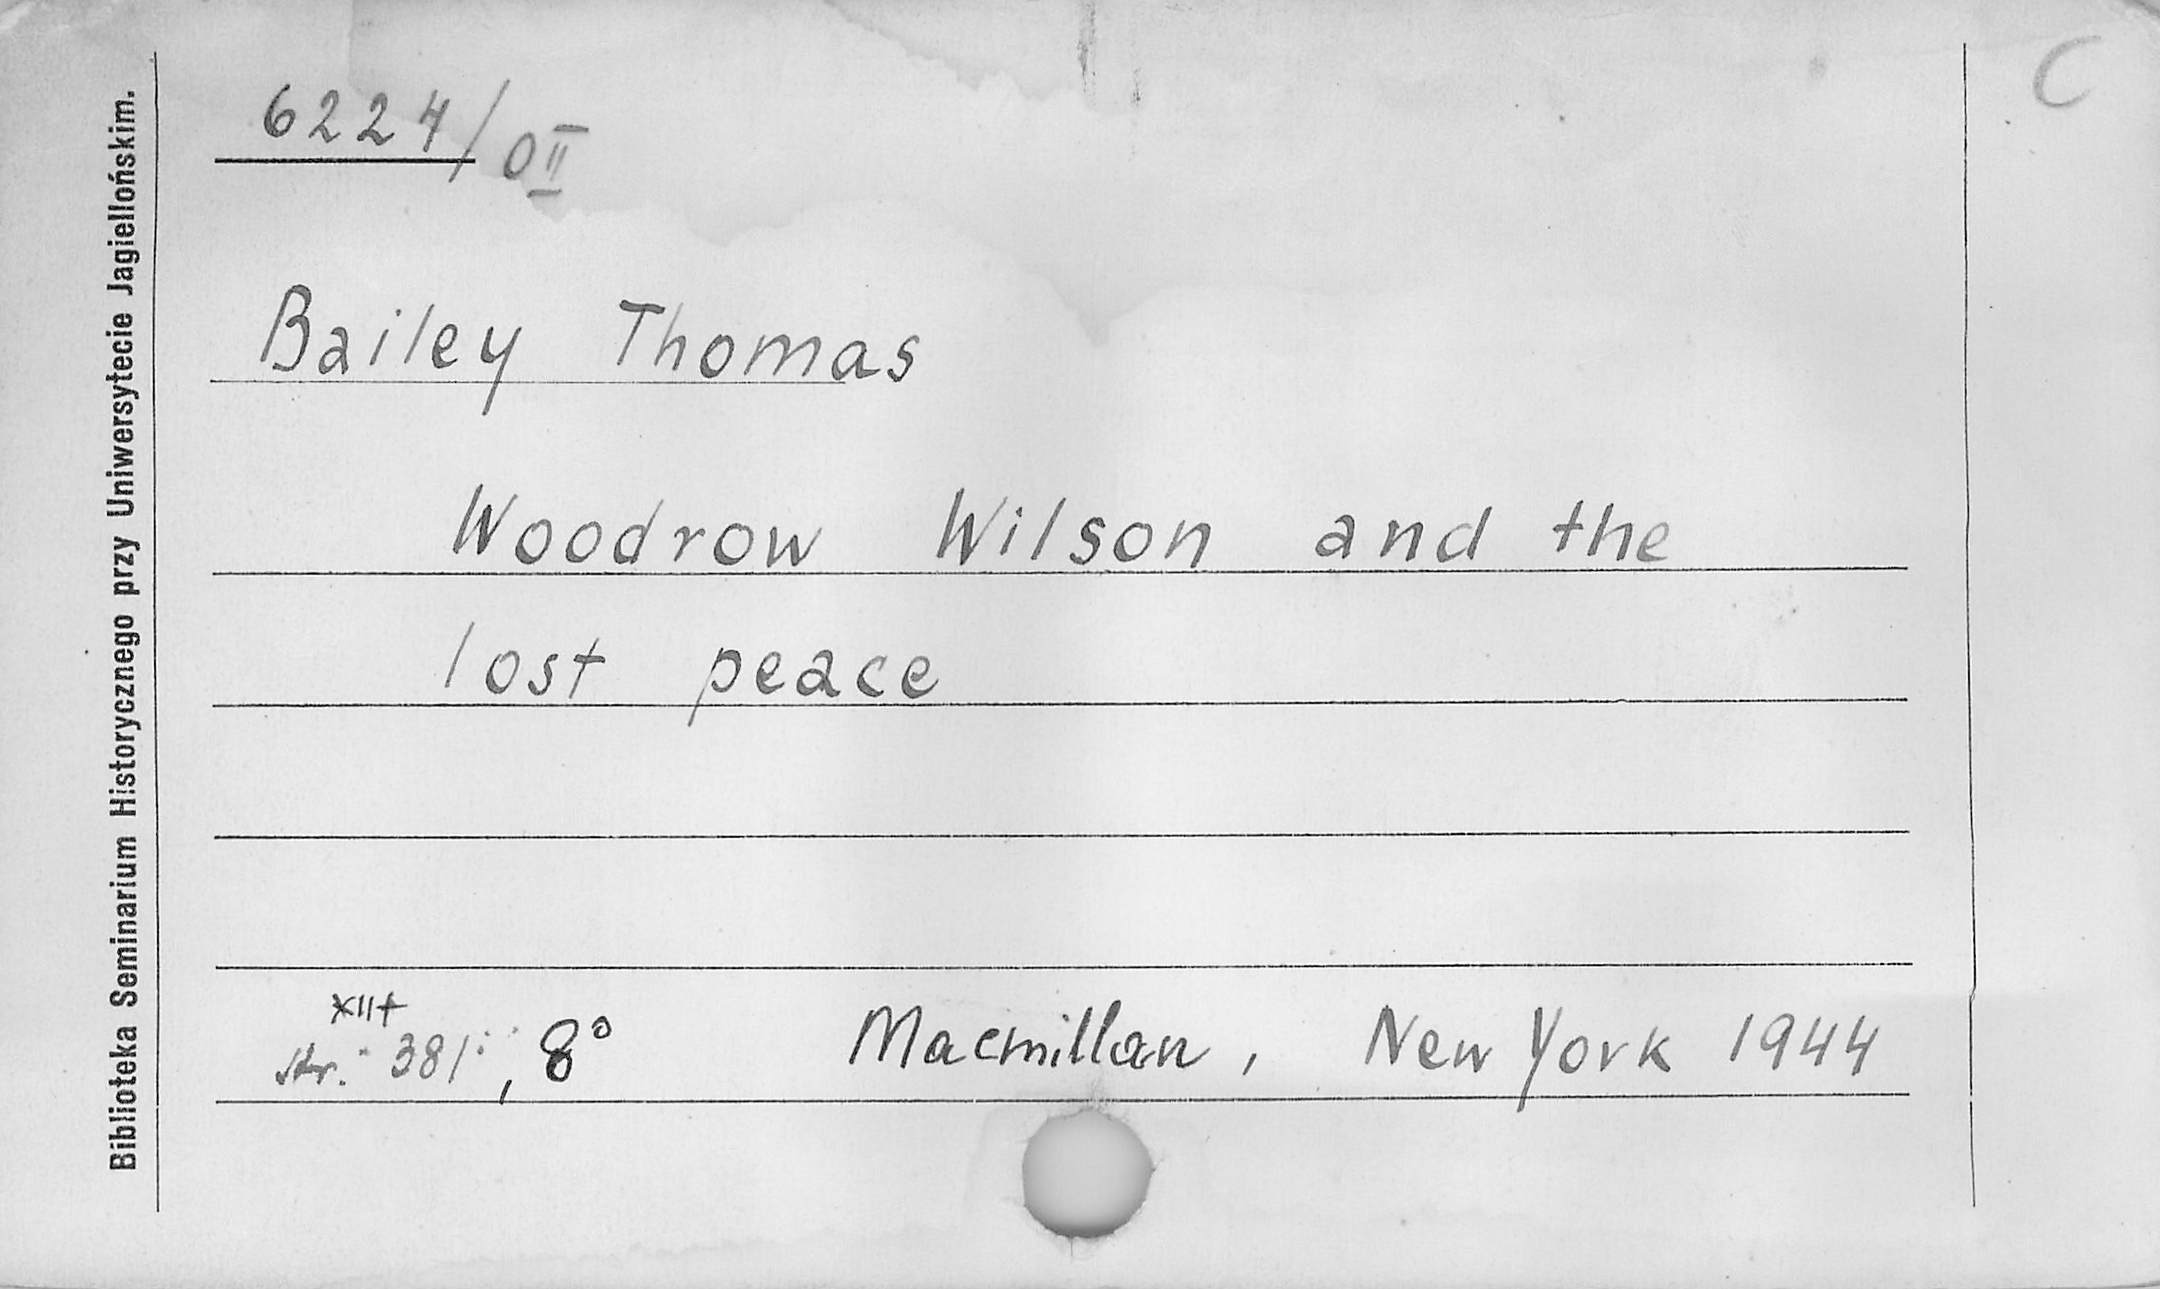 Biblioteka Seminarium Historycznego przy Uniwersytecie Jagiellońskim.
C
6224/OII
Bailey Thomas
Woodrow Wilson and the
lost peace
XII+
str. 381, 8° Macmillan, New York 1944